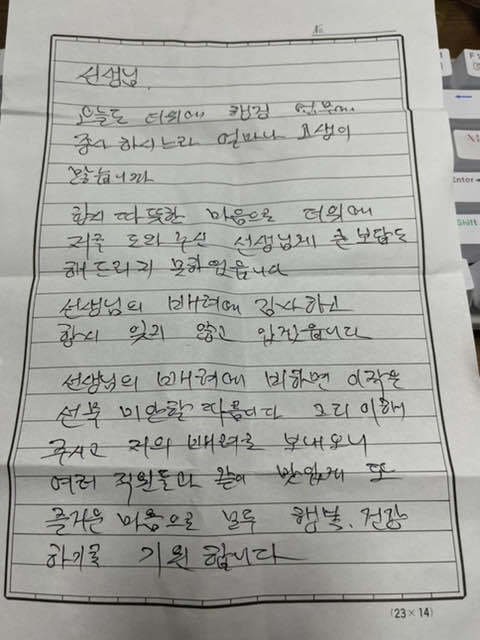 No
선생님,
오늘도 더위에 행정 업무에
종사 하시는라 얼마나 고생이
많습니까
항시 따뜻한 마음으로 더위에
저를 도와 주신 선생님께 큰 보답도
해드리지 못하였읍니다
선생님의 배려에 감사하고
항시 잊지 않고 있겠읍니다
선생님의 배려에 비하면 이작은
선물 미안할 따름니다 그리 이해
주시고 저의 배려를 보내오니
여러 직원들과 같이 맛있게 또
즐거운 마음으로 모두 행복, 건강
하기를 기원 합니다
(23×14)
Enter
Shift